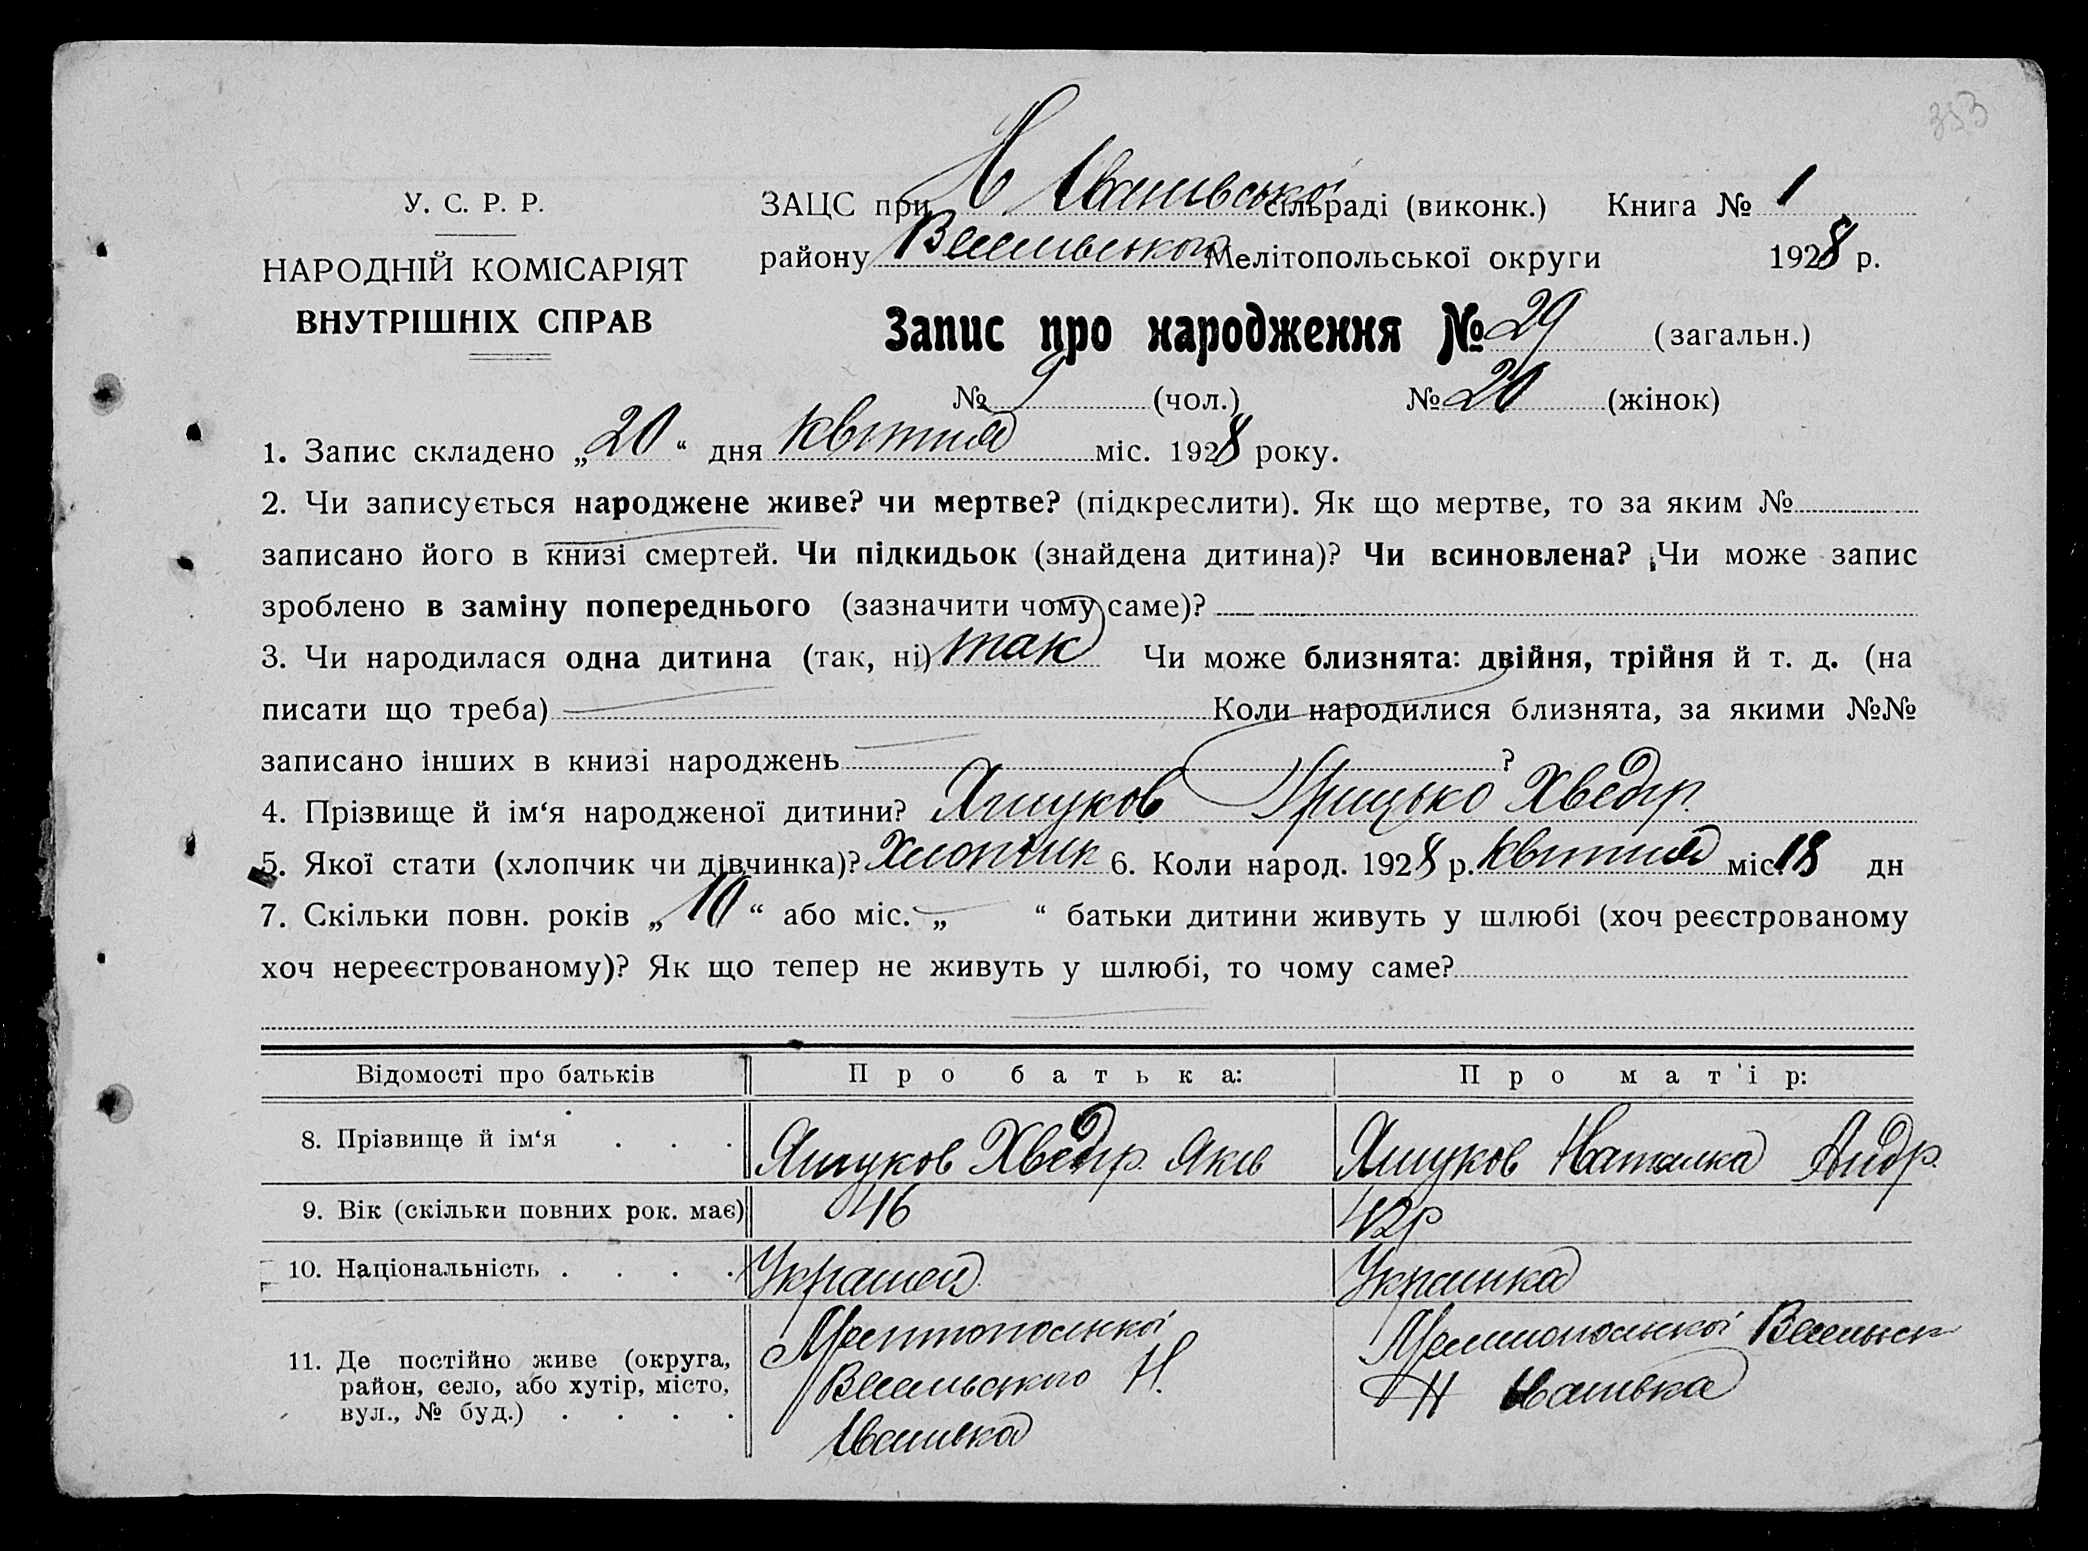 353
У. С. Р. Р.
НАРОДНІЙ КОМІСАРІЯТ
ВНУТРІШНІХ СПРАВ
ЗАЦС при Н Іванівської сільраді (виконк.) Книга № 1
району Веселівського Мелітопольської округи 1928 р.
Запис про народження № 29 (загальн.)
№ 9 (чол.) № 20 (жінок)
1. Запис складено „20“ дня квітня міс. 1928 року.
2. Чи записується народжене живе? чи мертве? (підкреслити). Як що мертве, то за яким №
записано його в книзі смертей. Чи підкидьок (знайдена дитина)? Чи всиновлена? Чи може запис
зроблено в заміну попереднього (зазначити чому саме)?
3. Чи народилася одна дитина (так, ні) так Чи може близнята: двійня, трійня й т. д. (на
писати що треба) Коли народилися близнята, за якими №№
записано інших в книзі народжень ?
4. Прізвище й ім‘я народженої дитини? Яшуков Грицько Хведір.
5. Якої стати (хлопчик чи дівчинка)? Хлопчик 6. Коли народ. 1928 р. квітня міс. 18 дн
7. Скільки повн. років „10“ або міс. „ “ батьки дитини живуть у шлюбі (хоч реєстрованому
хоч нереєстрованому)? Як що тепер не живуть у шлюбі, то чому саме?
Відомості про батьків Про батька: Про мат'ір:
8. Прізвище й ім‘я . . . Яшуков Хведір. Яків Яшуков Наталка Андр.
9. Вік (скільки повних рок. має) 46 42р
10. Національність . . . . Українец Українка
11. Де постійно живе (округа, район, село, або хутір, місто, вул., № буд.) . . . .
Мелітопольскої
Веселівського Н.
Іванівка
Мелітопольскої Веселівск
Н Іванівка